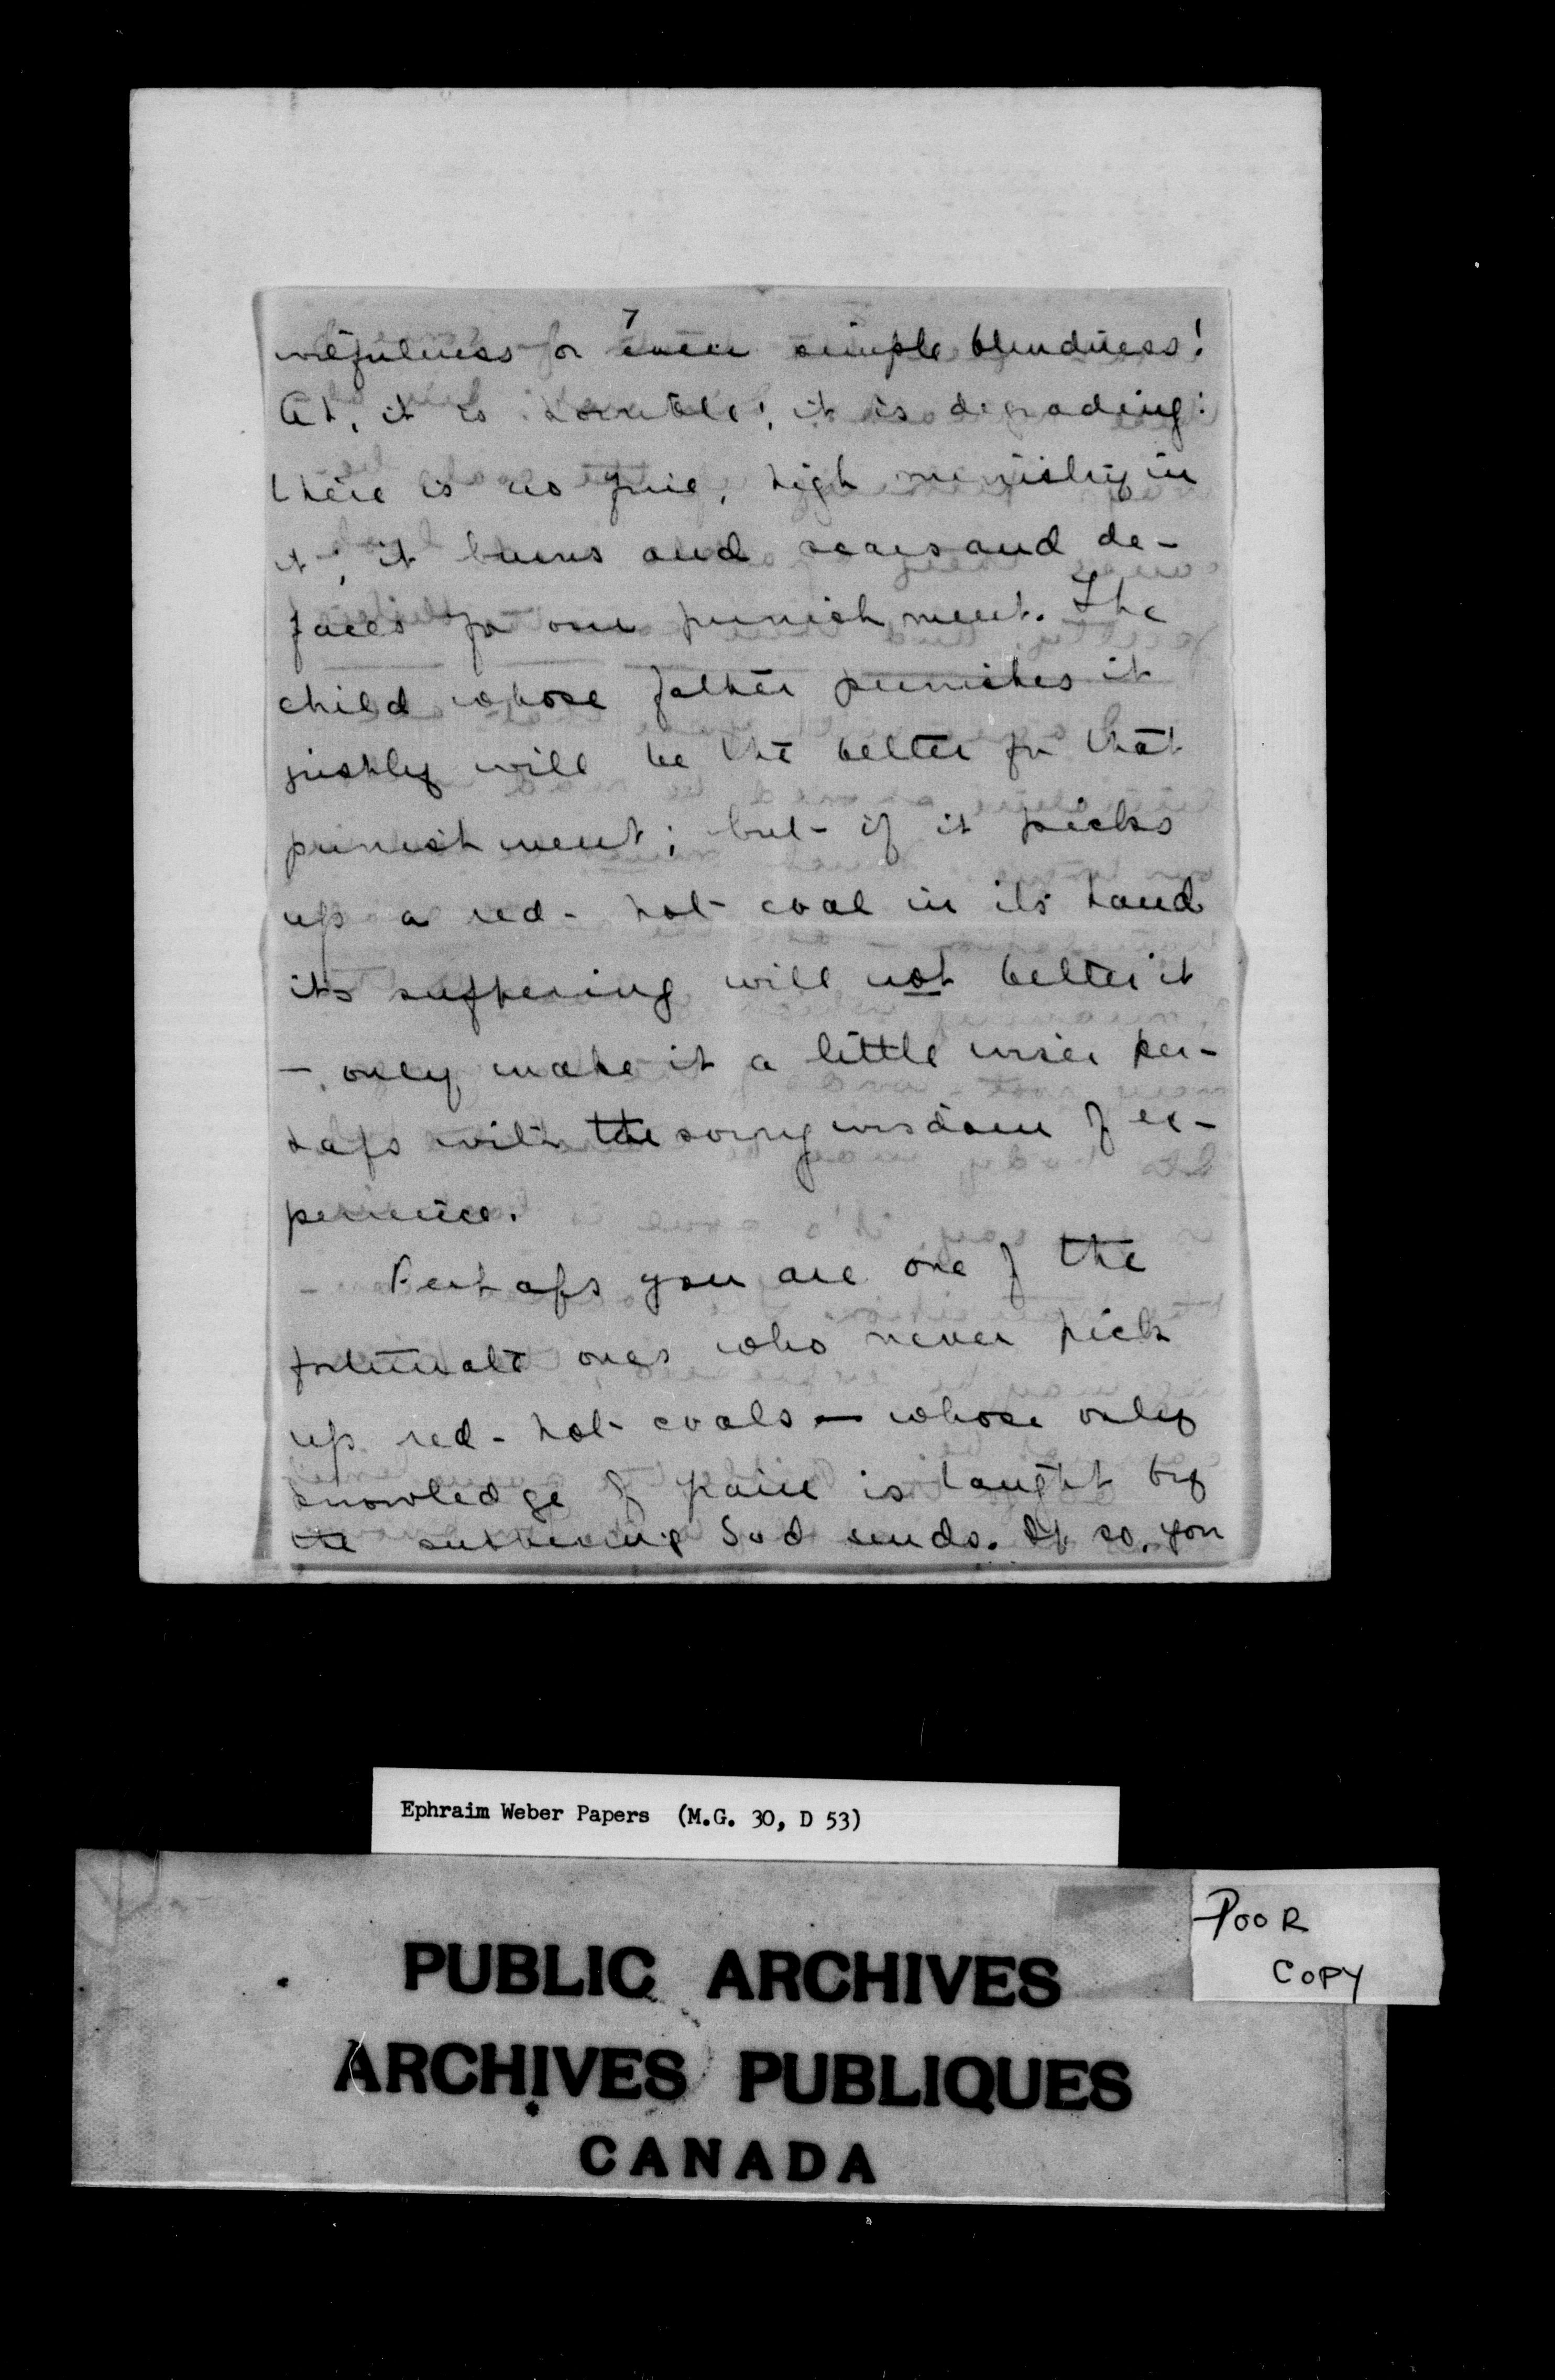 7
wilfulness or even simple blindness!
Ah, it is horrible! it is degrading:
there is no fine, high ministry in
it; it burns and sears and de-
faces for our punishment. The
child whose father punishes it
justly will be the better for that
punishment; but if it picks
up a red-hot coal in its hand
its suffering will not better it
- only make it a little wiser per-
haps with the sorry wisdom of ex-
perience.
Perhaps you are one of the
fortunate ones who never pick
up red-hot coals — whose only
knowledge of pain is taught by
the suffering God sends. If so, you
Ephraim Weber Papers (M.G. 30, D 53)
POOR
COPY
PUBLIC ARCHIVES
ARCHIVES PUBLIQUES
CANADA